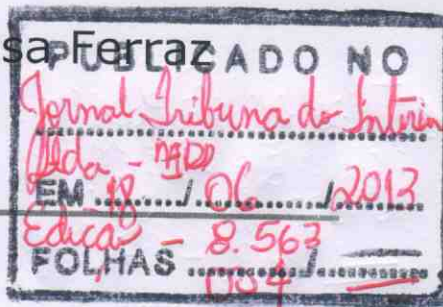 sa Ferraz
PUBLICADO NO
Jornal Tribuna do Interior
Ltda -
EM 18 / 06 / 2013
Edição - 8.563
FOLHAS 004 /